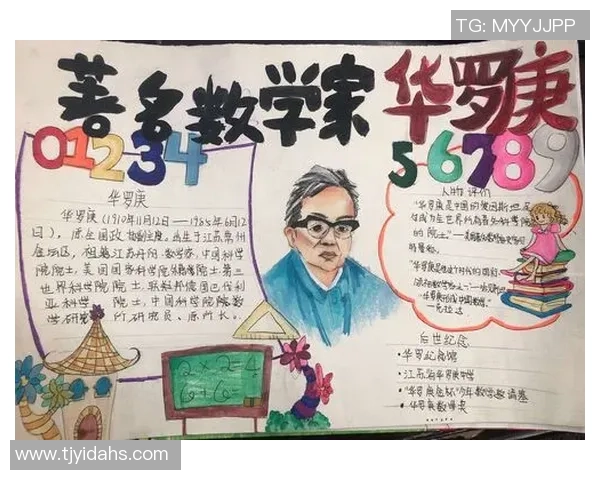 TG: MYYJJPP
著名数学家 华罗庚
01234
56789
华罗庚
华罗庚(1910年11月12日——1985年6月12
日),原全国政协副主席。出生于江苏常州
金坛区,祖籍江苏丹阳。数学家,中国科学
院院士,美国国家科学院外籍院士,第三
世界科学院院士,联邦德国巴伐利
亚科学院院士,中国科学院数
学研究所研究员、原所长。
人物评价
“华罗庚是中国的爱因斯坦,足
够成为全世界所有著名科学院
的院士。”
2×2=4
6+6=
后世纪念
·华罗庚纪念馆
·江苏省华罗庚中学
·“华罗庚金杯”少年数学邀请赛
·华罗庚数学奖
www.tjyidahs.com